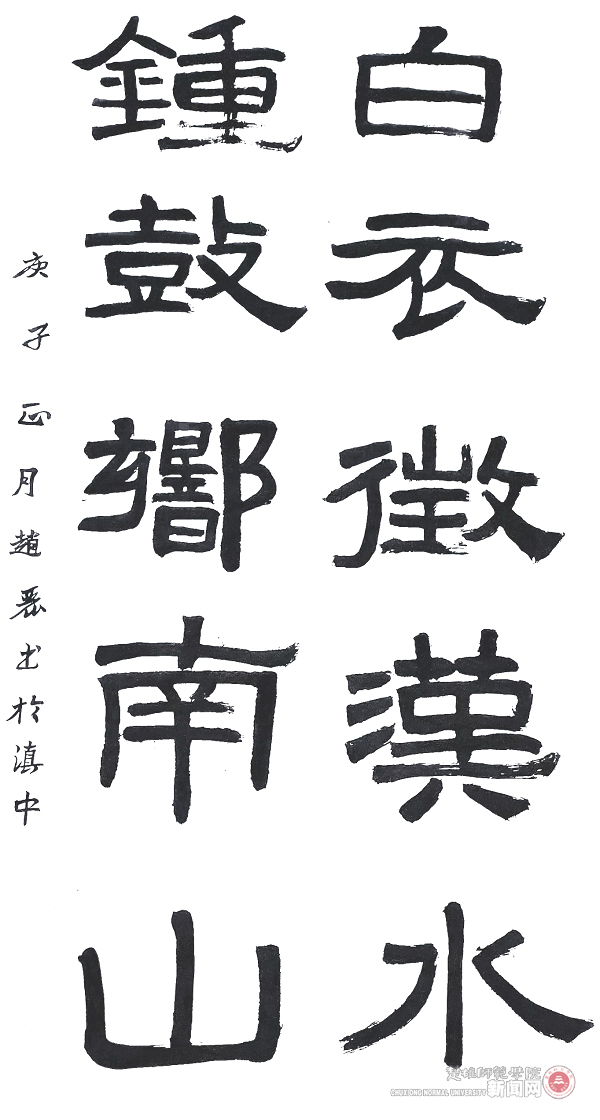 白衣徵漢水
鍾鼓響南山
庚子正月趙磊书於滇中
楚雄師範學院
CHUXIONG NORMAL UNIVERSITY 新闻网